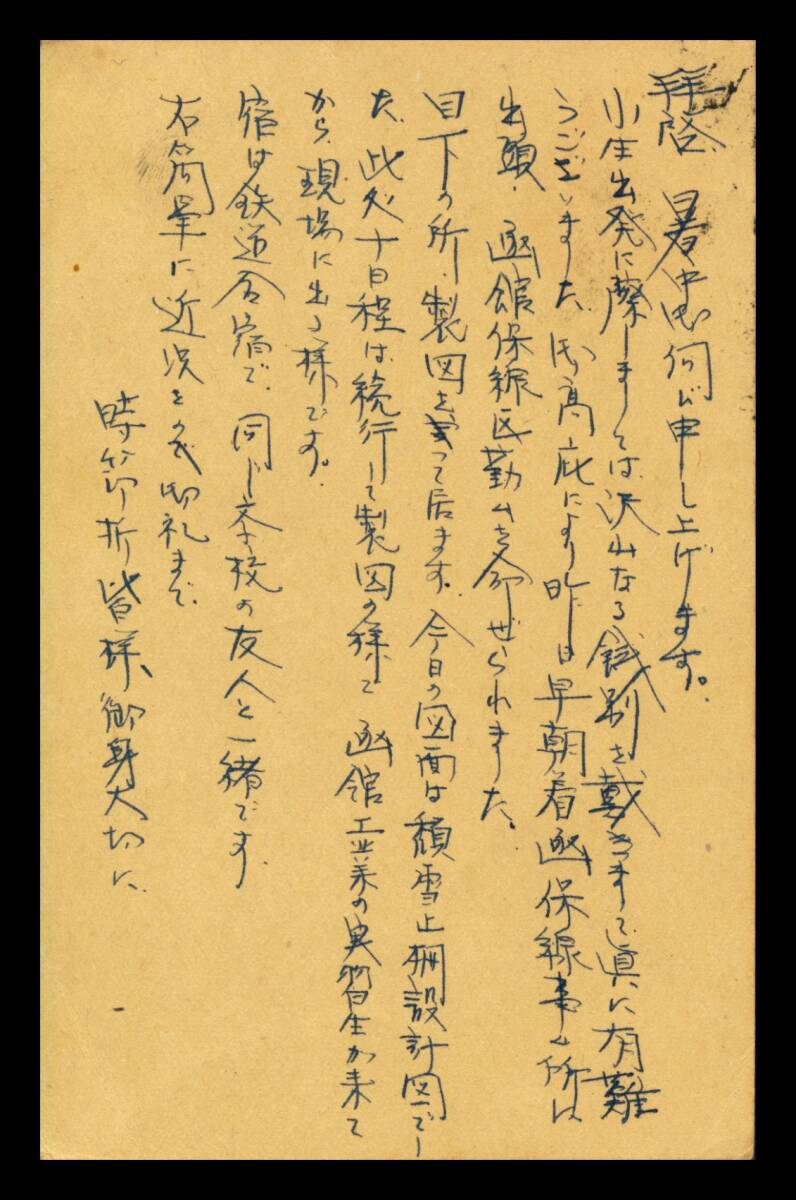 拝啓 暑中御伺ひ申し上げます。
小生出発に際しましては沢山なる餞別を戴きまして真に有難
うございました。御高庇により昨日早朝着函保線事ム所に
出頭、函館保線区勤ムを命ぜられました。
目下の所、製図を習って居ます。今日の図面は積雪止柵設計図でし
た。此処十日程は続行して製図の様で函館工業の実習生が来て
から現場に出る様です。
宿は鉄道合宿で、同じ学校の友人と一緒です。
右簡単に近況を 御礼まで。
時節折皆様、御身大切に。